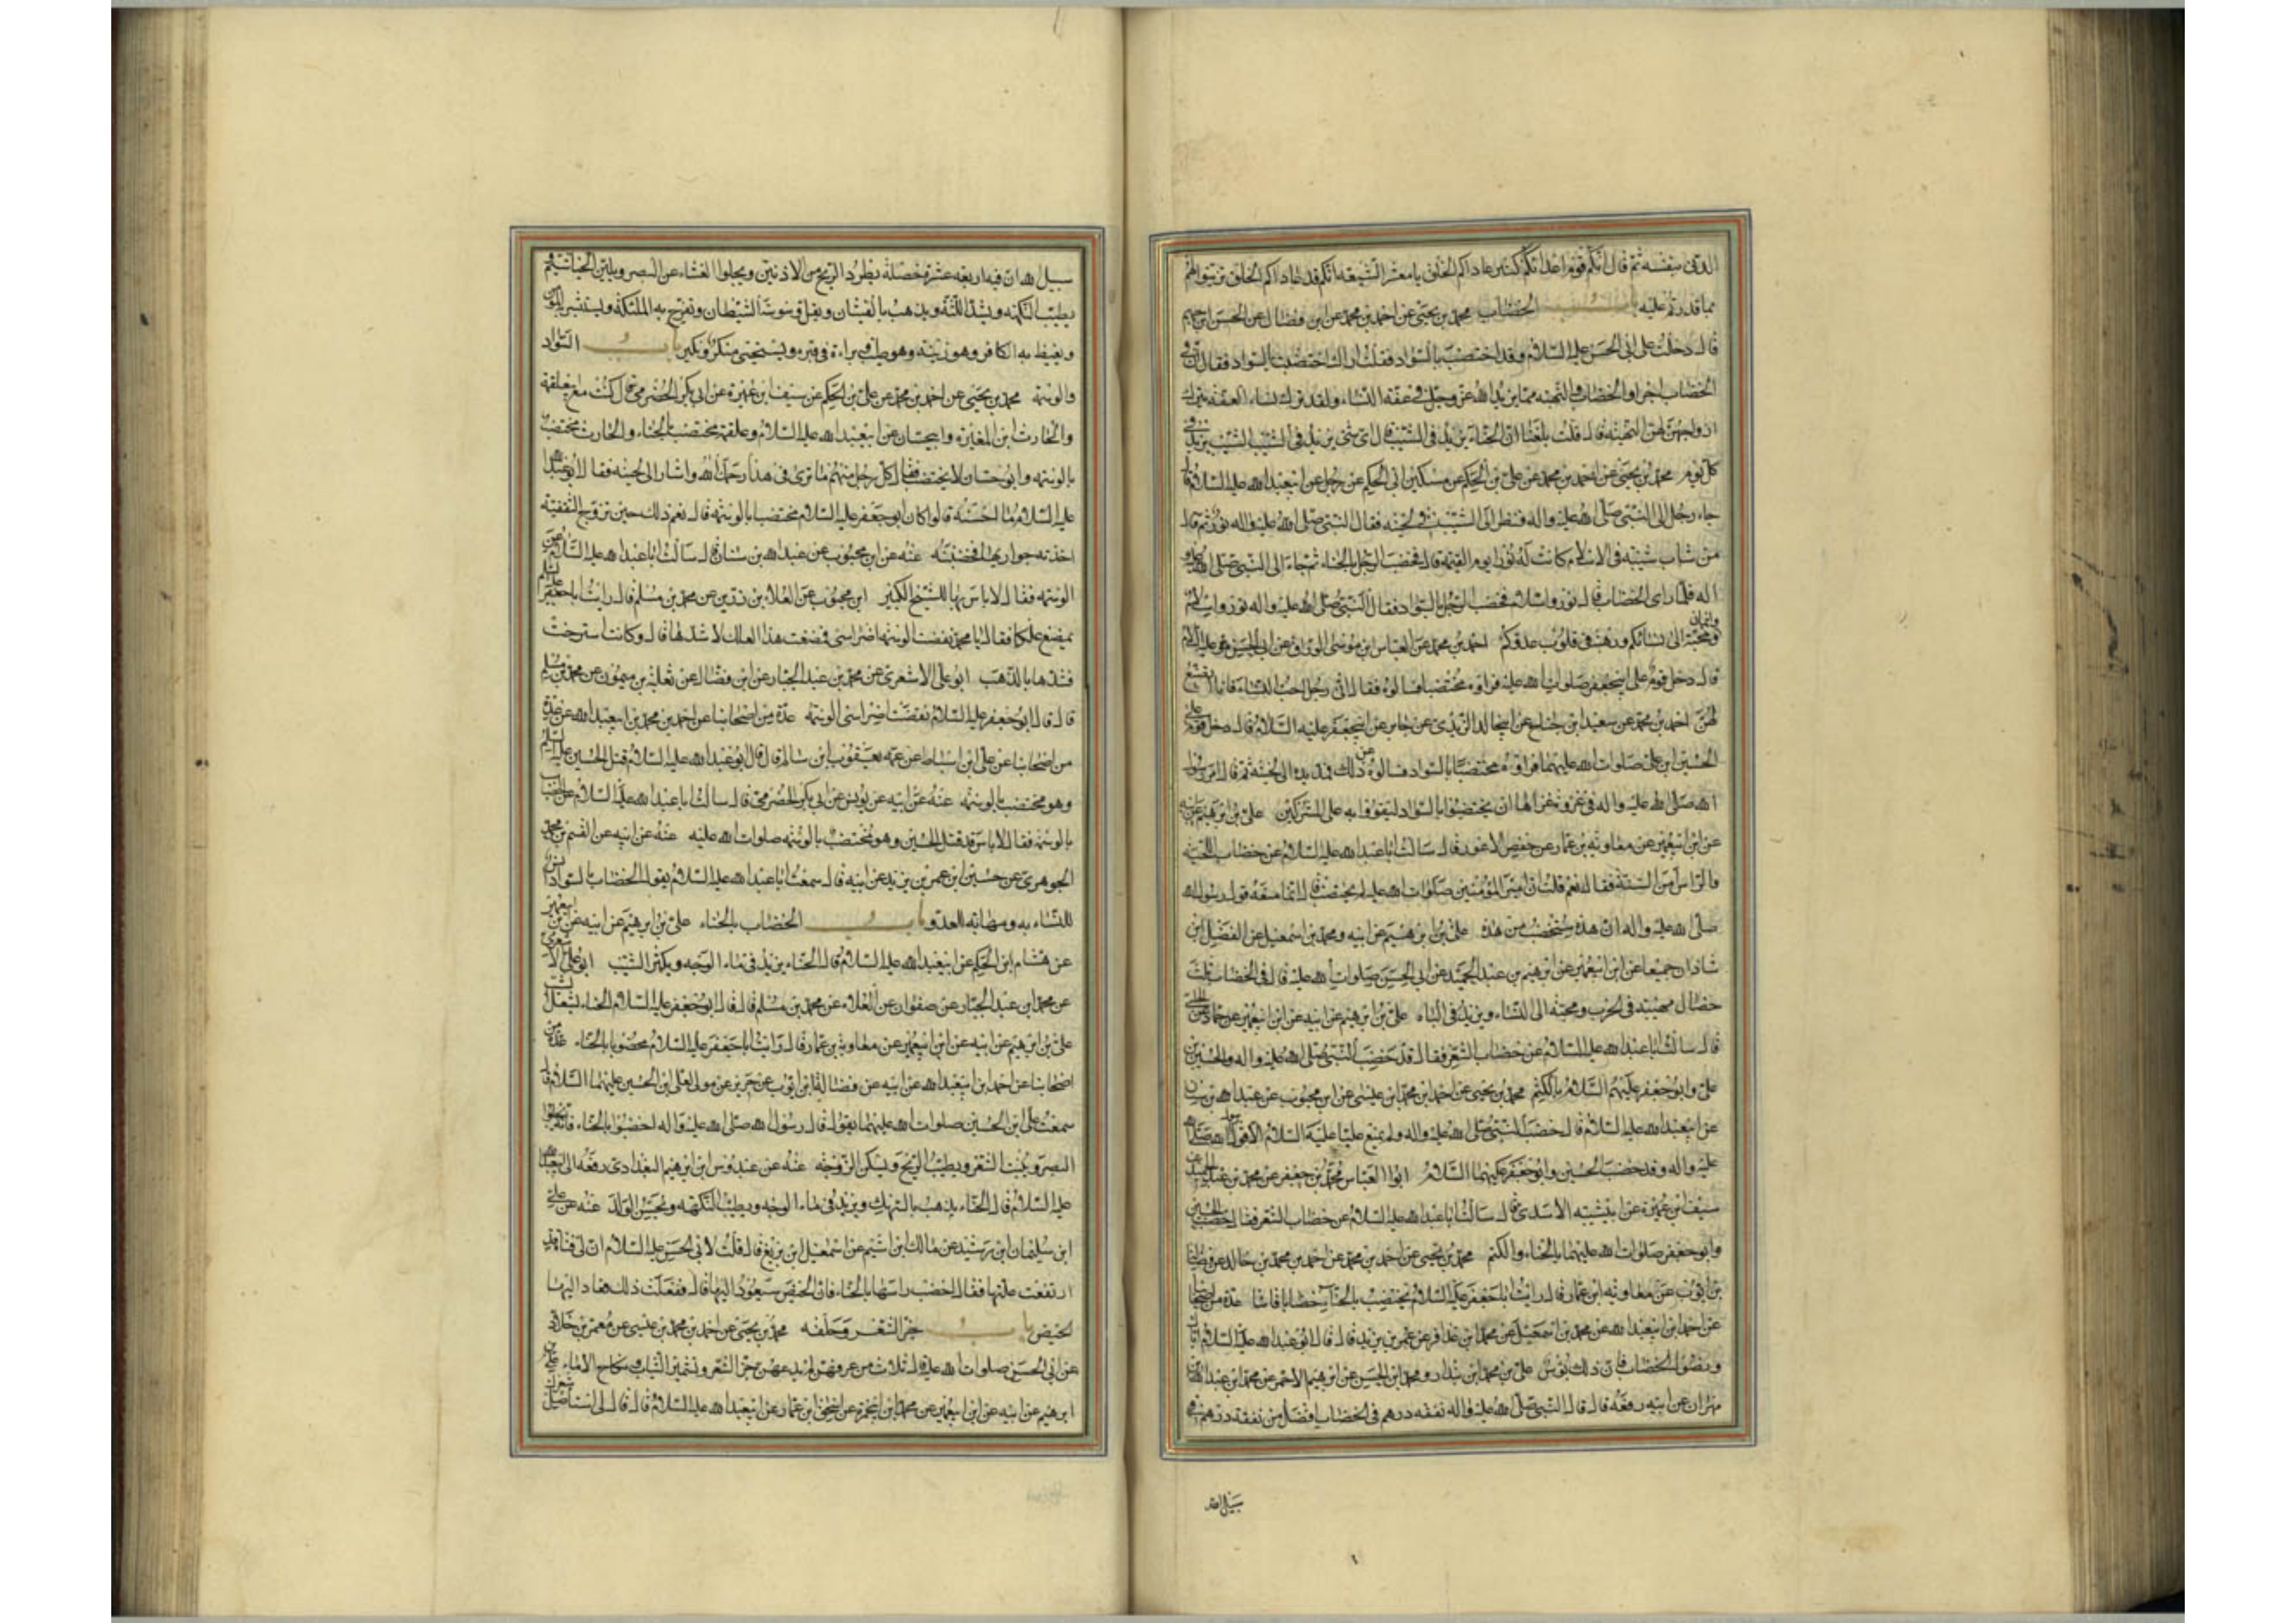 الدنى بنفسه ثم قال انكم قوم اعداءكم كثير عاداكم الخلق يا معشر الشيعة انكم قد عاداكم الخلق فتزينوا لهم
بما قدرتم عليه باب الخضاب محمد بن يحيى عن احمد بن محمد عن ابن فضال عن الحسن بن جهم
قال دخلت على ابى الحسن عليه السلام وقد اختضب بالسواد فقلت اراك اختضبت بالسواد فقال ان فى
الخضاب اجرا والخضاب والتهيئة مما يزيد الله عز وجل فى عفة النساء ولقد ترك نساء العفة بترك
ازواجهن لهن التهيئة قال قلت بلغنا ان الحناء يزيد فى الشيب قال اى شئ يزيد فى الشيب الشيب يزيد فى
كل يوم محمد بن يحيى عن احمد بن محمد عن على بن الحكم عن مسكين ابى الحكم عن رجل عن ابيعبد الله عليه السلام قال
جاء رجل الى النبى صلى الله عليه واله فنظر الى الشيب فى لحيته فقال النبى صلى الله عليه واله نور ثم قال
من شاب شيبة فى الاسلام كانت له نورا يوم القيمة قال فخضب الرجل بالحناء ثم جاء الى النبى صلى الله عليه و
اله فلما راى الخضاب قال نور واسلام فخضب الرجل بالسواد فقال النبى صلى الله عليه واله نور واسلام
وايمان ومحبة الى نسائكم ورهبة فى قلوب عدوكم احمد بن محمد عن العباس بن موسى الوراق عن ابى الحسن عليه السلام
قال دخل قوم على ابيجعفر صلوات الله عليه فراوه مختضبا فسالوه فقال انى رجل احب النساء فانا اتصنع
لهن احمد بن محمد عن سعيد بن جناح عن ابيخالد الزيدى عن جابر عن ابيجعفر عليه السلام قال دخل قوم على
الحسين ابن على صلوات الله عليهما فراوه مختضبا بالسواد فسالوه عن ذلك فمد يده الى لحيته ثم قال امر رسول
الله صلى الله عليه واله فى غزوة غزاها ان يختضبوا بالسواد ليقووا به على المشركين على بن ابرهيم عن ابيه
عن ابن ابيعمير عن معاوية بن عمار عن حفص الاعور قال سالت ابا عبد الله عليه السلام عن خضاب اللحية
والراس من السنة فقال نعم قلت ان امير المؤمنين صلوات الله عليه لم يختضب قال انما منعه قول رسول الله
صلى الله عليه واله ان هذه ستخضب من هذه على بن ابرهيم عن ابيه ومحمد بن اسمعيل عن الفضل ابن
شاذان جميعا عن ابن ابيعمير عن ابرهيم بن عبد الحميد عن ابى الحسن صلوات الله عليه قال فى الخضاب ثلث
خصال مهيبة فى الحرب ومحبة الى النساء ويزيد فى الباه على بن ابرهيم عن ابيه عن ابن ابيعمير عن حماد عن الحلبى
قال سالت ابا عبد الله عليه السلام عن خضاب الشعر فقال قد خضب النبى صلى الله عليه واله والحسين بن
على وابو جعفر عليهم السلام بالكتم محمد بن يحيى عن احمد ابن محمد ابن عيسى عن ابن محبوب عن عبد الله بن سنان
عن ابيعبد الله عليه السلام قال خضب النبى صلى الله عليه واله ولم يمنع عليا عليه السلام الا قول رسول الله صلى الله
عليه واله وقد خضب الحسين وابو جعفر عليهما السلام ابو العباس محمد بن جعفر عن محمد بن عبد الحميد عن
سيف ابن عميرة عن ابيشيبة الاسدى قال سالت ابا عبد الله عليه السلام عن خضاب الشعر فقال خضب الحسين
وابو جعفر صلوات الله عليهما بالحناء والكتم محمد بن يحيى عن احمد بن محمد عن احمد بن محمد بن خالد عن فضالة
بن ايوب عن معاوية ابن عمار قال رايت ابا جعفر عليه السلام يختضب بالحناء خضابا قانيا عدة من اصحابنا
عن احمد ابن ابيعبد الله عن محمد بن اسمعيل عن محمد ابن عذافر عن عمر بن يزيد قال قال ابو عبد الله عليه السلام اياك
ونصول الخضاب فان ذلك بؤس على بن محمد ابن بندار ومحمد ابن الحسن عن ابرهيم الاحمر عن محمد ابن عبد الله بن
مهران عن ابيه رفعه قال قال النبى صلى الله عليه واله نفقة درهم فى الخضاب افضل من نفقة درهم فى
سبيل الله
سبيل الله ان فيه اربعة عشرة خصلة يطرد الريح من الاذنين ويجلوا الغشاء عن البصر ويلين الخياشيم و
يطيب النكهة ويشد اللثة ويذهب بالغشيان ويقل وسوسة الشيطان وتفرح به الملئكة ويستبشر به المؤمن
ويغيظ به الكافر وهو زينة وهو طيب وبراءة فى قبره ويستحيى منكر ونكير باب السواد
والوسمة محمد بن يحيى عن احمد بن محمد عن على بن الحكم عن سيف ابن عميرة عن ابى بكر الحضرمى قال كنت مع ابيعلقمة
والحارث ابن المغيرة وابيحسان عن ابيعبد الله عليه السلام وعلقمة مختضب بالحناء والحارث مختضب
بالوسمة وابو حسان لا يختضب فقال كل رجل منهم ما ترى فى هذا رحمك الله واشار الى لحيته فقال ابو عبد الله
عليه السلام ما احسنه قالوا كان ابو جعفر عليه السلام مختضبا بالوسمة قال نعم ذلك حين تزوج الثقفية
اخذته جواريها فخضبته عنه عن ابن محبوب عن عبد الله بن سنان قال سالت ابا عبد الله عليه السلام عن
الوسمة فقال لا باس بها للشيخ الكبير ابن محبوب عن العلاء بن رزين عن محمد بن مسلم قال رايت ابا جعفر عليه السلام
يمضغ علكا فقال يا محمد نقضت الوسمة اضراسى فمضغت هذا العلك لاشدها قال وكانت استرخت
فشدها بالذهب ابو على الاشعرى عن محمد بن عبد الجبار عن ابن فضال عن ثعلبة بن ميمون عن محمد بن مسلم
قال قال ابو جعفر عليه السلام نقضت اضراسى الوسمة عدة من اصحابنا عن احمد بن محمد بن ابيعبد الله عن عدة
من اصحابنا عن على ابن اسباط عن عمه يعقوب ابن سالم قال قال ابو عبد الله عليه السلام قتل الحسين عليه السلم
وهو مختضب بالوسمة عنه عن ابيه عن يونس عن ابى بكر الحضرمى قال سالت ابا عبد الله عليه السلام عن الخضاب
بالوسمة فقال لا باس قد قتل الحسين وهو مختضب بالوسمة صلوات الله عليه عنه عن ابيه عن القسم بن محمد
الجوهرى عن حسين ابن عمر بن يزيد عن ابيه قال سمعت ابا عبد الله عليه السلام يقول الخضاب بالسواد انس
للنساء به ومهابة للعدو باب الخضاب بالحناء على بن ابرهيم عن ابيه عن ابن ابيعمير
عن هشام ابن الحكم عن ابيعبد الله عليه السلام قال الحناء يزيد فى ماء الوجه ويكثر الشيب ابو على الاشعرى
عن محمد ابن عبد الجبار عن صفوان عن العلاء عن محمد بن مسلم قال قال ابو جعفر عليه السلام الحناء يشعل الشيب
على بن ابرهيم عن ابيه عن ابن ابيعمير عن معاوية بن عمار قال رايت ابا جعفر عليه السلام مخضوبا بالحناء عدة من
اصحابنا عن احمد ابن ابيعبد الله عن ابيه عن فضالة ابن ايوب عن حريز عن مولى لعلى ابن الحسين عليهما السلام قال
سمعت على ابن الحسين صلوات الله عليهما يقول قال رسول الله صلى الله عليه واله اخضبوا بالحناء فانه يجلوا
البصر وينبت الشعر ويطيب الريح ويسكن الزوجة عنه عن عبدوس ابن ابرهيم البغدادى رفعه الى ابيعبد الله
عليه السلام قال الحناء يذهب بالسهك ويزيد فى ماء الوجه ويطيب النكهة ويحسن الولد عنه عن على
ابن سليمان ابن رشيد عن مالك ابن اشيم عن اسمعيل ابن بزيع قال قلت لابى الحسن عليه السلام ان لى فتاة قد
ارتفعت علتها فقال اخضب راسها بالحناء فان الحيض سيعود اليها قال ففعلت ذلك فعاد اليها
الحيض باب جز الشعر وحلقه محمد بن يحيى عن احمد بن محمد بن عيسى عن معمر بن خلاد
عن ابى الحسن صلوات الله عليه قال ثلاث من عرفهن لم يدعهن جز الشعر وتشمير الثياب ونكاح الاماء على بن
ابرهيم عن ابيه عن ابن ابيعمير عن محمد ابن ابيحمزة عن اسحق ابن عمار عن ابيعبد الله عليه السلام قال قال لى استاصل شعرك